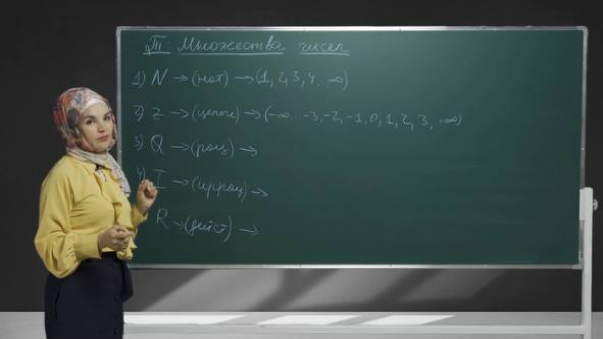 III. Множества чисел
1) N → (нат) → (1, 2, 3, 4, ∞)
2) Z → (целые) → (-∞. -3, -2, -1, 0, 1, 2, 3, -∞)
3) Q → (рац) →
4) I → (иррац) →
R → (дейст) →